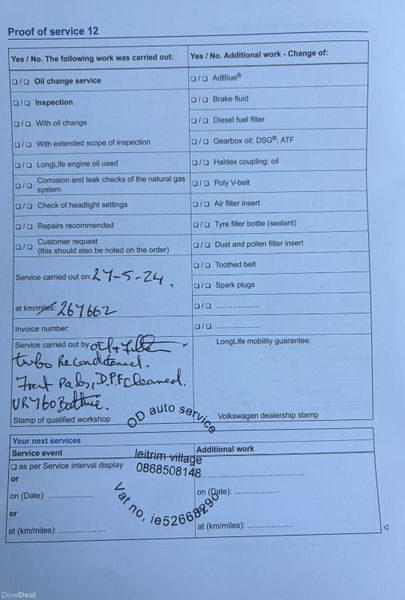 Proof of service 12
Yes / No. The following work was carried out:
Yes / No. Additional work - Change of:
❑ / ❑ Oil change service
❑ / ❑ AdBlue®
❑ / ❑ Inspection
❑ / ❑ Brake fluid
❑ / ❑ With oil change
❑ / ❑ Diesel fuel filter
❑ / ❑ With extended scope of inspection
❑ / ❑ Gearbox oil: DSG®, ATF
❑ / ❑ LongLife engine oil used
❑ / ❑ Haldex coupling: oil
❑ / ❑ Corrosion and leak checks of the natural gas
system
❑ / ❑ Poly V-belt
❑ / ❑ Check of headlight settings
❑ / ❑ Air filter insert
❑ / ❑ Repairs recommended
❑ / ❑ Tyre filler bottle (sealant)
❑ / ❑ Customer request
(this should also be noted on the order)
❑ / ❑ Dust and pollen filter insert
❑ / ❑ Toothed belt
Service carried out on: 27-5-24.
❑ / ❑ Spark plugs
at km/miles: 267662
❑ / ❑ ....................
Invoice number:
❑ / ❑ ....................
Service carried out by oil + filter
LongLife mobility guarantee:
turbo Reconditioned.
Front Pads, D.P.F cleaned.
Stamp of qualified workshop
Volkswagen dealership stamp
OD auto service
leitrim village
0868508148
Vat no, ie5266829
Your next services
Service event
Additional work
❑ as per Service interval display
or
on (Date): ....................
on (Date): ....................
or
at (km/miles): ....................
at (km/miles): ....................
DoneDeal